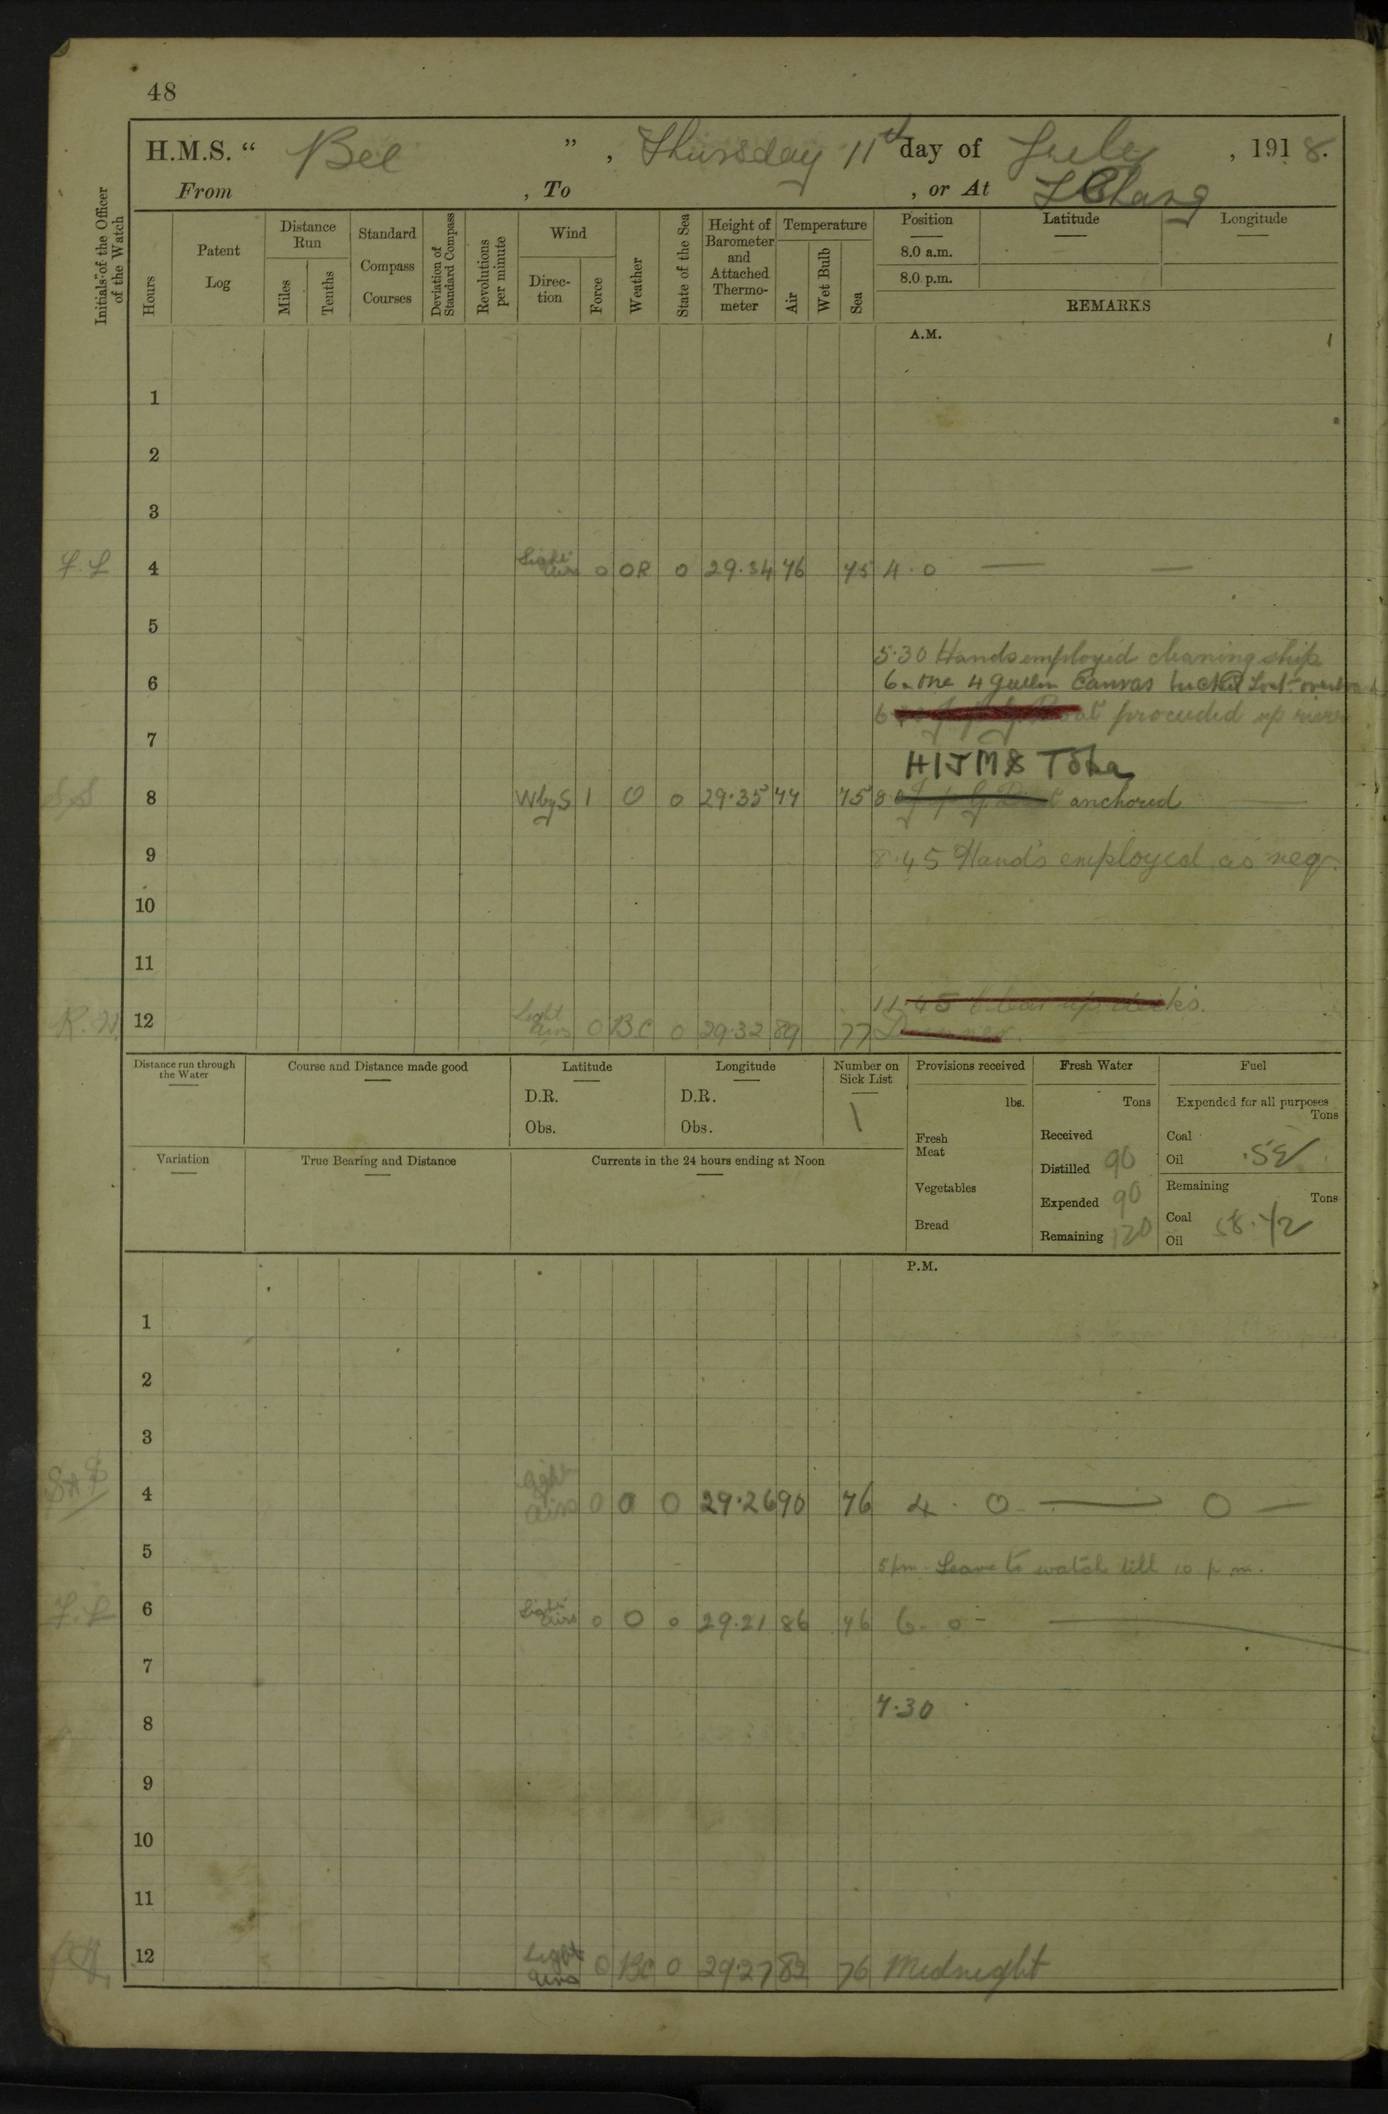 48
H.M.S. " Bee " , Thursday 11th day of July , 1918.
From , To , or At I Chang
Initials of the Officer of the Watch
Hours
Patent Log
Distance Run
Miles
Tenths
Standard Compass Courses
Deviation of Standard Compass
Revolutions per minute
Wind
Direction
Force
Weather
State of the Sea
Height of Barometer and Attached Thermometer
Temperature
Air
Wet Bulb
Sea
Position
Latitude
Longitude
8.0 a.m.
8.0 p.m.
REMARKS
A.M.
1
2
3
4 Light airs 0 OR 0 29.34 76 75 4.0 — —
5
5.30 Hands employed cleaning ship
6 6. one 4 gallon Canvas bucket Lost overboard
Boat proceeded up river
7
HIJMS Toba
8 W by S 1 O 0 29.35 77 75 8.0 anchored
9 8.45 Hands employed as req.
10
11
11.45 Clear up decks.
R.W. 12 Light airs 0 BC 0 29.32 89 77 Dinner.
Distance run through the Water
Course and Distance made good
Latitude
D.R.
Obs.
Longitude
D.R.
Obs.
Number on Sick List
1
Provisions received
lbs.
Fresh Meat
Vegetables
Bread
Fresh Water
Tons
Received
Distilled 90
Expended 90
Remaining 120
Fuel
Expended for all purposes
Tons
Coal
Oil .52
Remaining
Tons
Coal
Oil 58.72
Variation
True Bearing and Distance
Currents in the 24 hours ending at Noon
P.M.
1
2
3
4 Light airs 0 O 0 29.26 90 76 4.0 — 0 —
5 5 pm Leave to watch till 10 p.m.
6 Light airs 0 O 0 29.21 86 76 6.0 —
7
7.30
8
9
10
11
12 Light airs 0 BC 0 29.27 82 76 Midnight